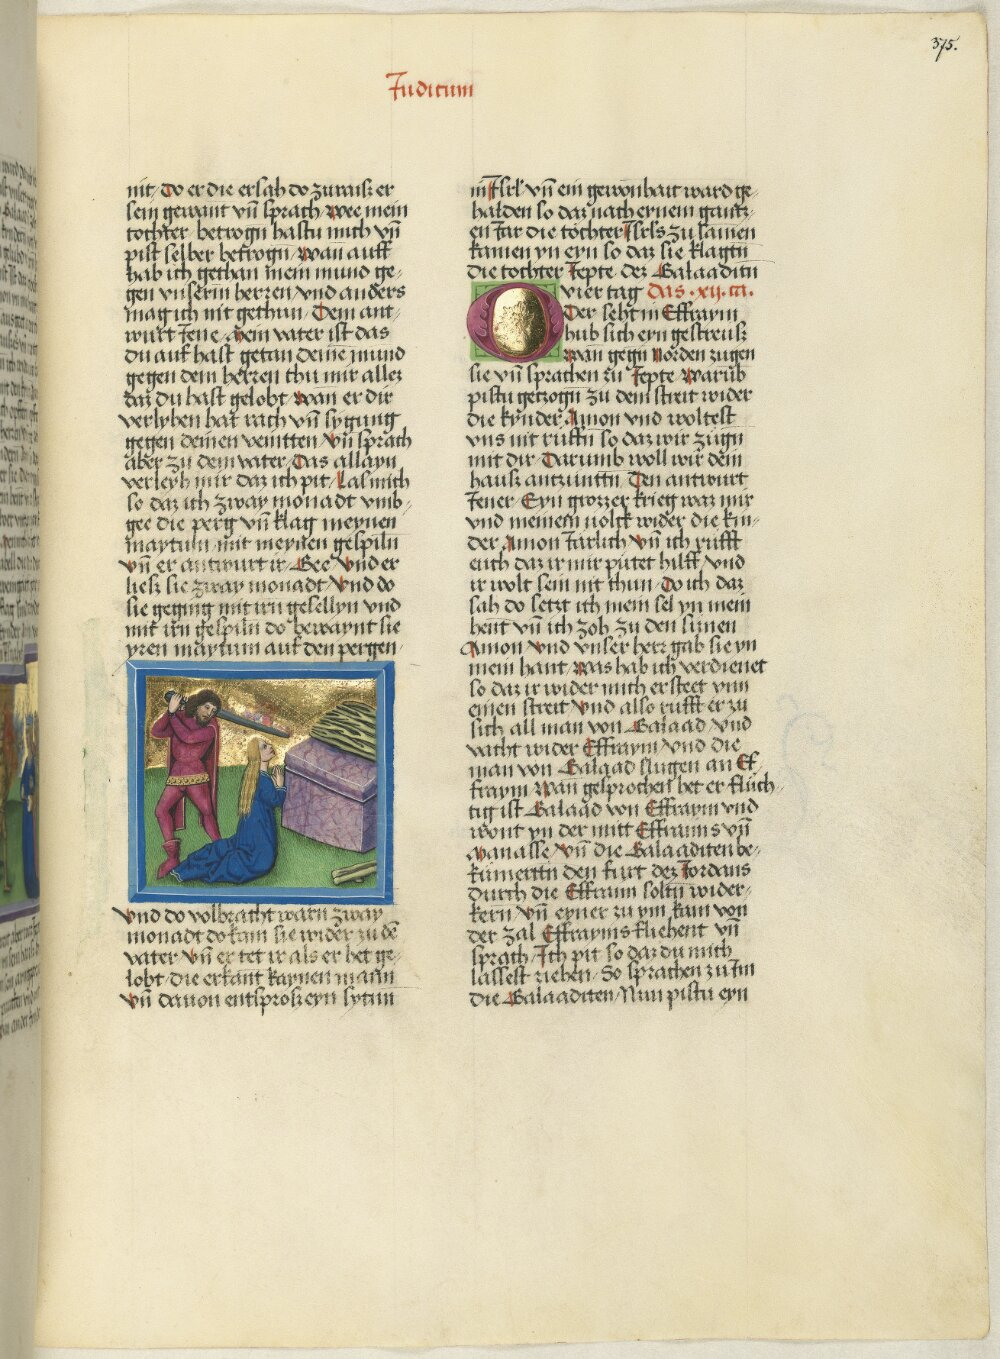 375.
Judicum
nit/ Do er die ersah do zuraisz er
sein gewant vn̄ sprach/ Wee mein
tochter betrogn hastu mich vn̄
pist selber betrogn/ Wan auff
hab ich gethan mein mund ge-
gen vnserm herren/ vnd anders
mag ich nit gethun/ Dem ant-
wurt Jene/ Mein vater ist das
du auf hast getan deine mund
gegen dem herren thu mir allez
daz du hast gelobt wan er dir
verlyhen hat rach vn̄ sygung
gegen deinen veintten vn̄ sprach
aber zu dem vater/ Das allayn
verleyh mir daz ich pit/ Las mich
so daz ich zway monadt vmb-
gee die perg vn̄ klag meynen
maytum/ mit meynen gespiln
vn̄ er antwurt ir/ Gee vnd er
liesz sie zway monadt/ vnd do
sie geging mit irn gesellyn vnd
mit irn gespiln do bewaynt sie
yren maytum auf den pergen/
vnd do volbracht warn zway
monadt do kam sie wider zu dē
vater vn̄ er tet ir als er het ge-
lobt/ die erkant kaynen mann
vn̄ dauon entsprosz eyn sytun
in Jsrl' vn̄ ein gewonhait ward ge-
halden so daz nach eynem gantz-
en Jar die töchter Jsrls zu samen
kamen yn eyn so daz sie klagtn
die tochter Jepte dez Galaaditn
vier tag das .xij. ca.
Der seht in Effraym
hub sich eyn gestreusz
wan gegn Norden zugen
sie vn̄ sprachen zu Jepte warūb
pistu getzogn zu dem streit wider
die kynder Amon vnd woltest
vns nit ruffn so daz wir zugn
mit dir Darumb woll wir dein
hausz antzunttn Den antwurt
Jener/ Eyn grozzer krieg waz mir
vnd meinem volck wider die kin-
der Amon Jarlich vn̄ ich rufft
euch daz ir mir putet hilff/ vnd
ir wolt sein nit thun/ Do ich daz
sah do setzt ich mein sel yn mein
hent vn̄ ich zoh zu den sunen
Amon vnd vnser herr gab sie yn
mein hant/ Was hab ich verdienet
so daz ir wider mich ersteet vmb
einen streit vnd also rufft er zu
sich all man von Galaad/ vnd
vacht wider Effraym/ vnd die
man von Galaad slugen an Ef-
fraym wan gesprochen het er flüch-
tig ist Galaad von Effraym vnd
wont yn der mitt Effraims vn̄
Manasse/ vn̄ die Galaaditen be-
kümertn den furt dez Jordans
durch die Effraim soltn wider-
kern vn̄ eyner zu ym kam von
der zal Effrayms fliehent vn̄
sprach/ Jch pit so daz du mich
lassest ziehen/ So sprachen zu Jm
die Galaaditen/ Nun pistu eyn